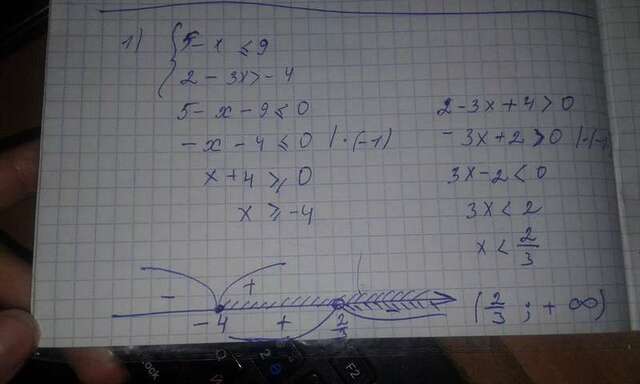 1) { 5 - x ≤ 9
2 - 3x > - 4
5 - x - 9 ≤ 0
- x - 4 ≤ 0 | · (-1)
x + 4 ≥ 0
x ≥ -4
2 - 3x + 4 > 0
- 3x + 2 > 0 | · (-1
3x - 2 < 0
3x < 2
x < 2/3
- + -
-4 + 2/3
(2/3 ; + ∞)
Q 2 F2